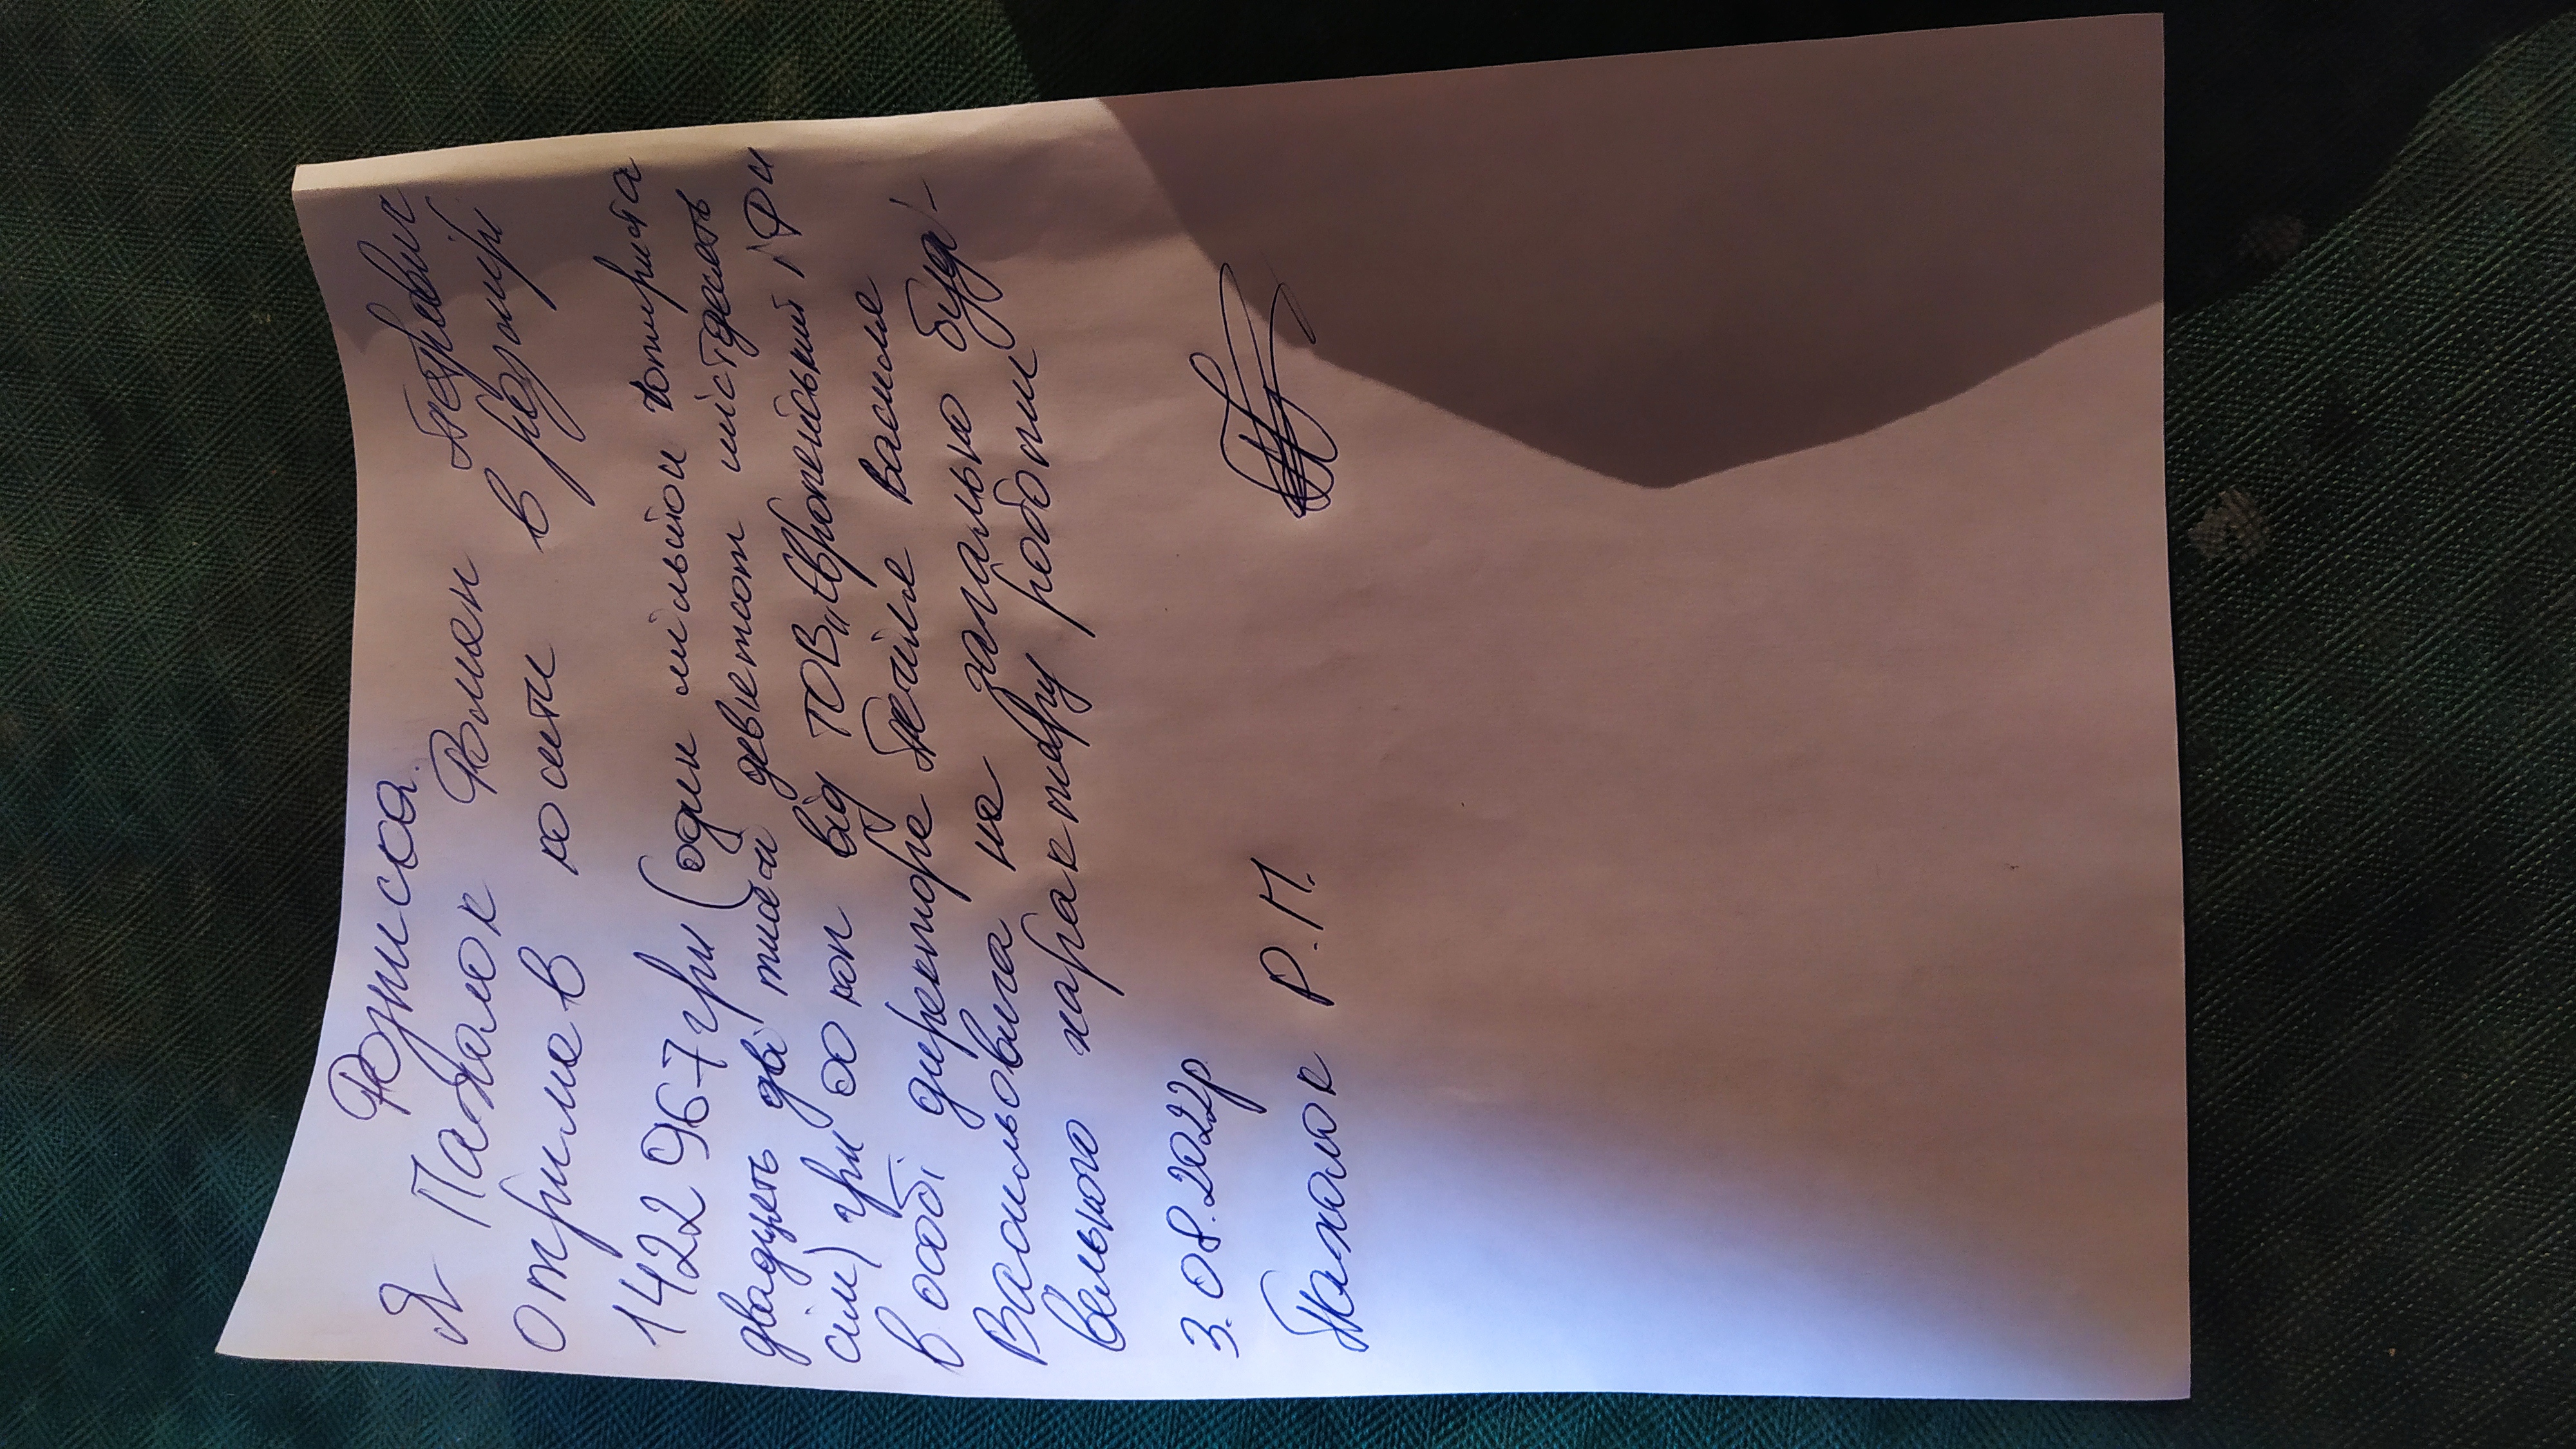 Розписка.
Я Пахалок Роман Петрович
отримав кошти в розмірі
1422967 грн (один мільйон чотириста
двадцять дві тисячі девятсот шістдесят
сім) грн оо коп від ТОВ „Європейський
в особі директора Василя
Васильовича на загально буді-
вельного характеру роботи
3.08.2022р
Пахалок Р.П.